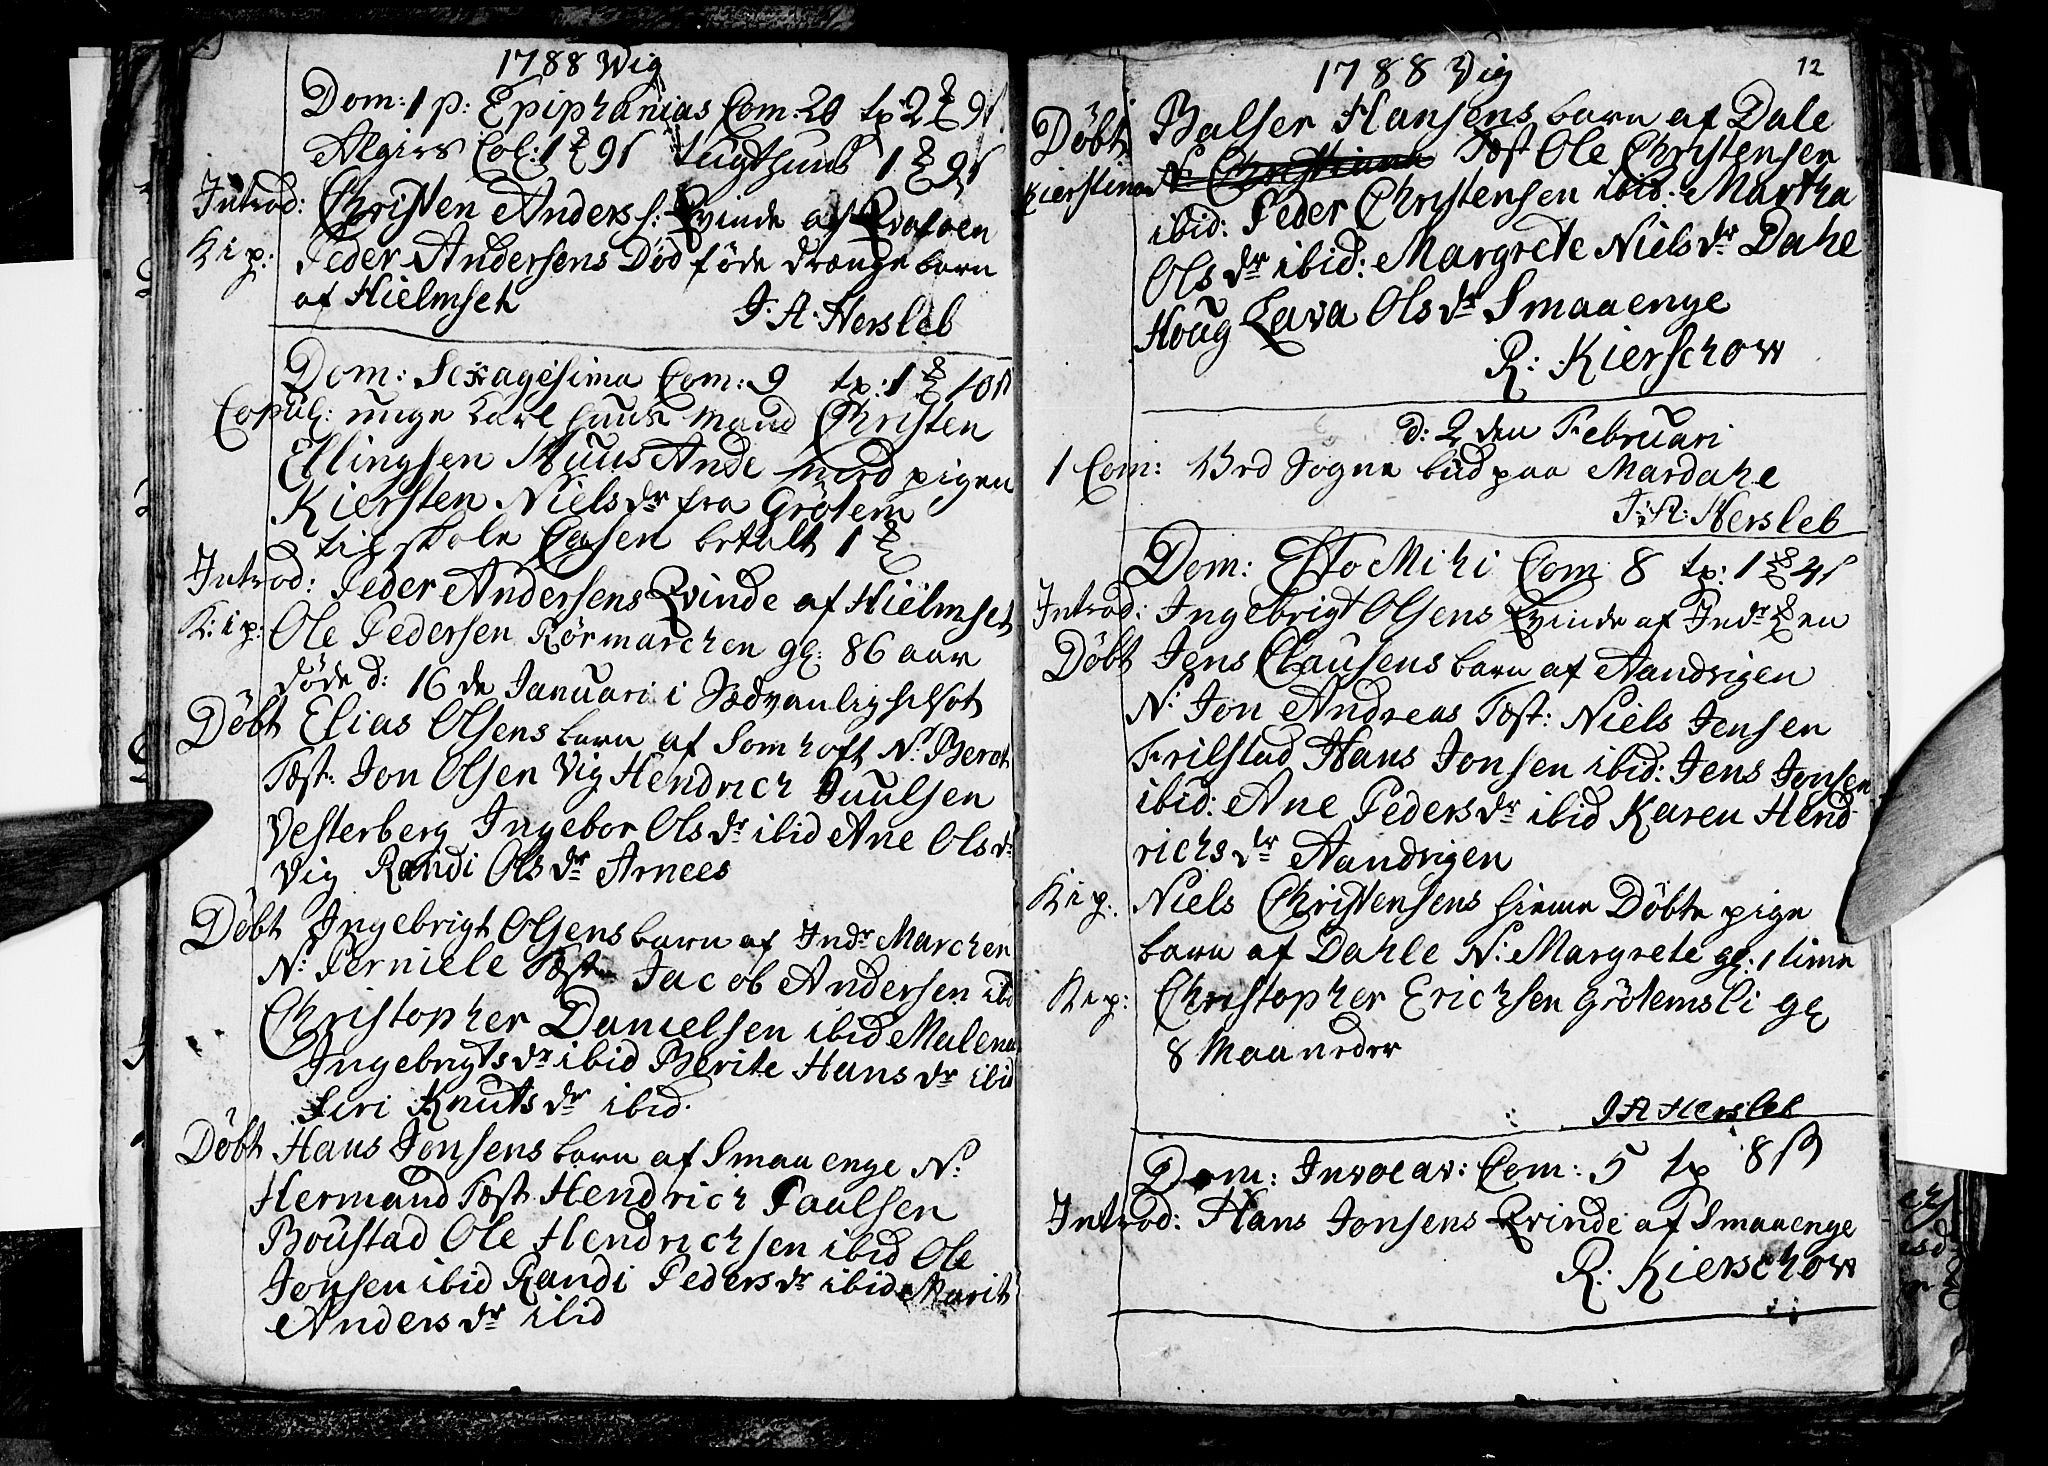 1788 Wig
Dom: 1 p: Epiphanias Com: 20 tp 2 9s
Algiers Col: 1 9s tugthuus 1 9s
Introd: Christen Anders s: Qvinde af
K: i p: Peder Andersens Død føde drænge barn
af Hielmseth
J. A. Hersleb
Dom: Sexagesima Com: 9 tp: 1 10s
Copul: unge karl huus mand Christen
Ellingsen Huus Ande med pigen
Kiersten Niels dr fra Grötem
til skole Casen betalt 1
Introd: Peder Andersens Qvinde af Hielmset
K: i p: Ole Pedersen Rörmarchen gl: 86 aar
døde d: 16 de Januari i Sædvanlig
Döbt Elias Olsens barn af Somhoft N: Beret
Test: Jon Olsen Vig Hendrich Juulsen
Vesterberg Ingebor Ols dr ibid Ane Ols dr
Vig Randi Ols dr Arnees
Döbt Ingebrigt Olsens barn af Indr Marchen
N: Perniele Test Jacob Andersen ibid
Christopher Danielsen ibid Malena
Ingebrigts dr ibid Berite Hans dr ibid
Siri Knuts dr ibid.
Döbt Hans Jonsens barn af Smaaenge N:
Hermand Test Hendrich Paulsen
Boustad Ole Hendrichsen ibid Ole
Jonsen ibid Randi Peders dr ibid Marit
Anders dr ibid
1788 Vig 12
Döbt Balser Hansens barn af Dale
Kierstina N: Christiana Test Ole Christensen
ibid: Peder Christensen ibid: Martha
Ols dr ibid: Margrete Niels dr Dahle
Houg Lava Ols dr Smaaenge
R: Kierschow
d: 2 den Februari
1 Com: Ved Sogne bud paa Mardahl
J: A: Hersleb
Dom: Esto Mihi Com 8 tp: 1 4s
Introd: Ingebrigt Olsens Qvinde af Indr
Döbt Jens Clausens barn af Aandrigen
N: Jon Andreas Test: Niels Jensen
Frilstad Hans Jonsen ibid: Jens Jonsen
ibid: Ane Peders dr ibid Karen Hend
richs dr Aandrigen
K i p: Niels Christensens hieme Döbte pige
barn af Dahle N: Margrete gl: 1 time
K i p: Christopher Erichsen Grötemsli gl
8 Maaneder
J A Hersleb
Dom: Invocav: Com: 5 tp 8 s
Introd: Hans Jonsens Qvinde af Smaaenge
R: Kierschow